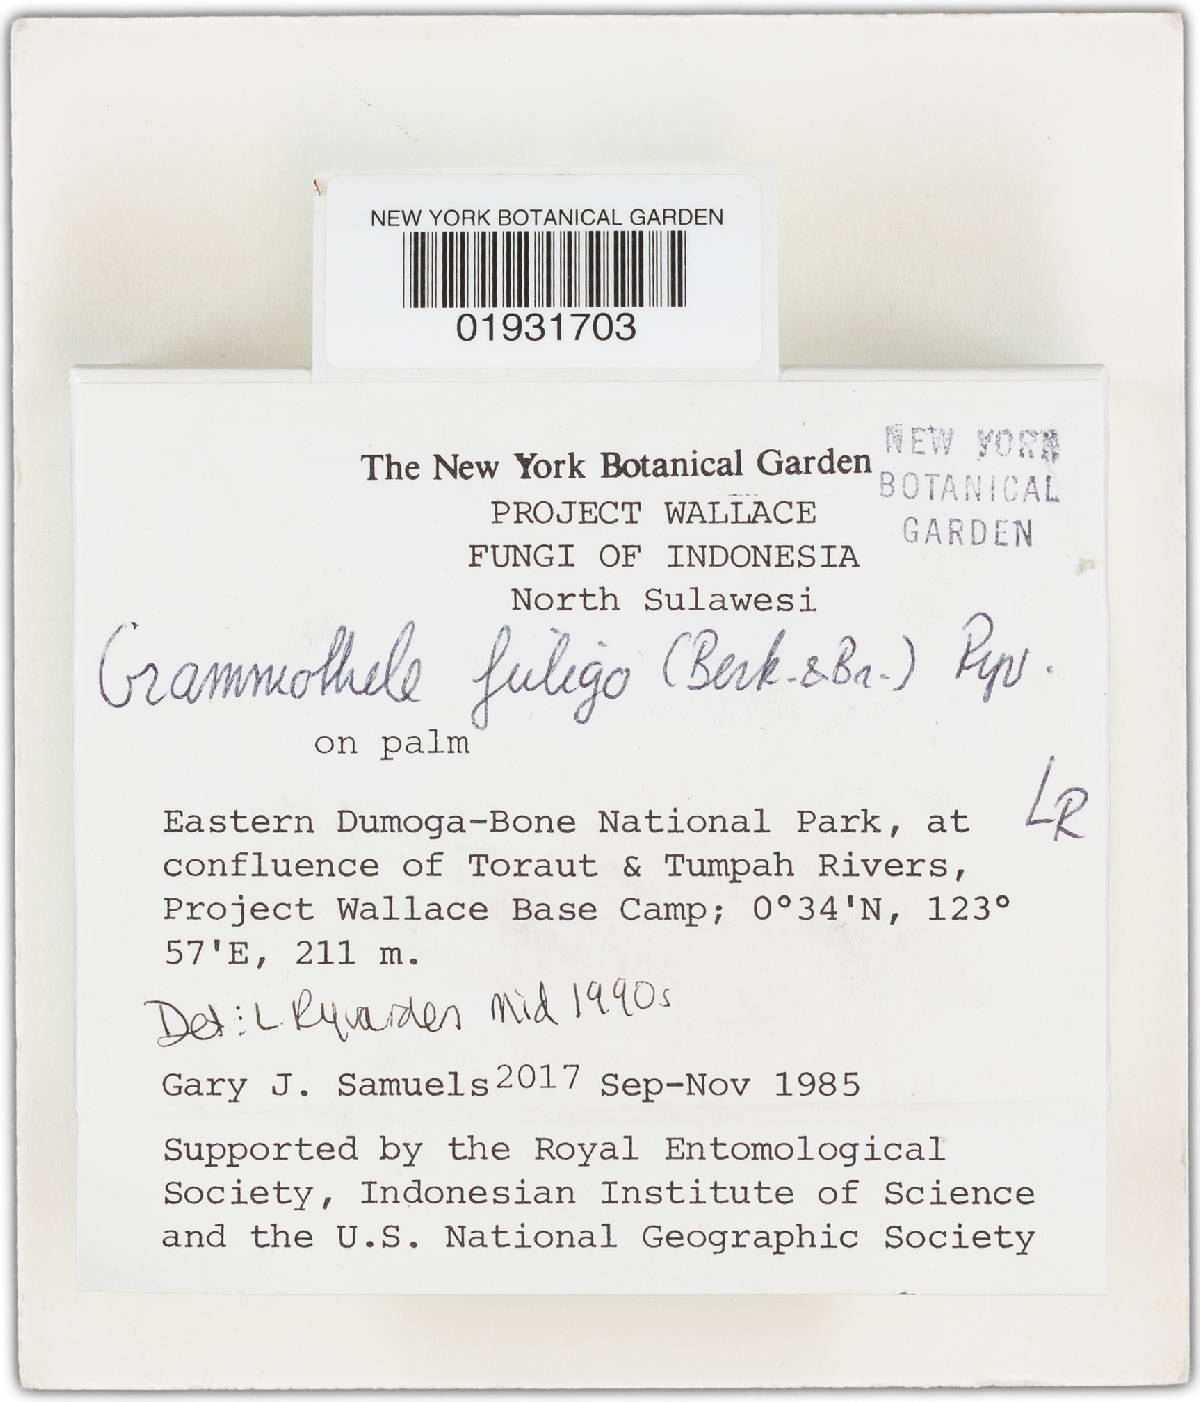 NEW YORK BOTANICAL GARDEN
01931703
The New York Botanical Garden
NEW YORK
BOTANICAL
GARDEN
PROJECT WALLACE
FUNGI OF INDONESIA
North Sulawesi
Grammothele fuligo (Berk. & Br.) Ryv.
on palm
LR
Eastern Dumoga-Bone National Park, at
confluence of Toraut & Tumpah Rivers,
Project Wallace Base Camp; 0°34'N, 123°
57'E, 211 m.
Det: L. Ryvarden mid 1990s
Gary J. Samuels 2017 Sep-Nov 1985
Supported by the Royal Entomological
Society, Indonesian Institute of Science
and the U.S. National Geographic Society